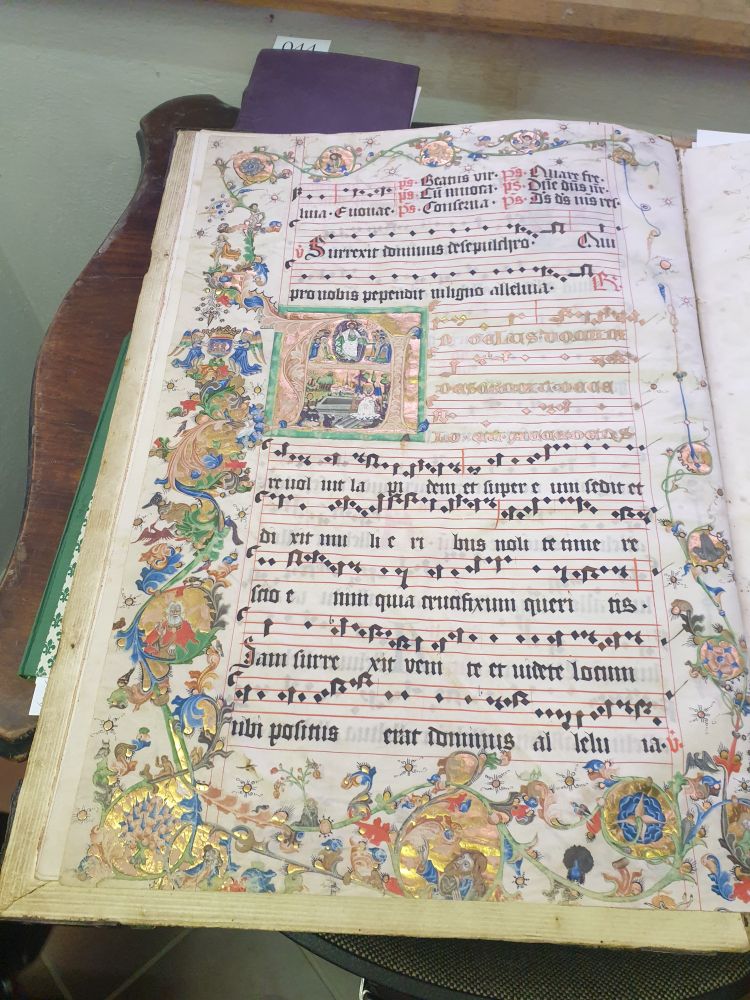 044
ps. Beatus vir. ps. Quare fre.
ps. Cū invoca. ps. Dñe dūs nr̄.
luia. Evovae. ps. Conserva. ps. Ds ds ms res
℣ Surrexit dominus de sepulchro. Qui
pro nobis pependit in ligno alleluia. R.
A N GELUS DOMINI
DESCENDIT DE CE
revol vit la pi dem et super e um sedit et
di xit mu li e ri bus noli te time re
scio e nim quia crucifixum queri tis
Jam surre xit veni te et videte locum
ubi positus erat dominus al lelu ia. ℣